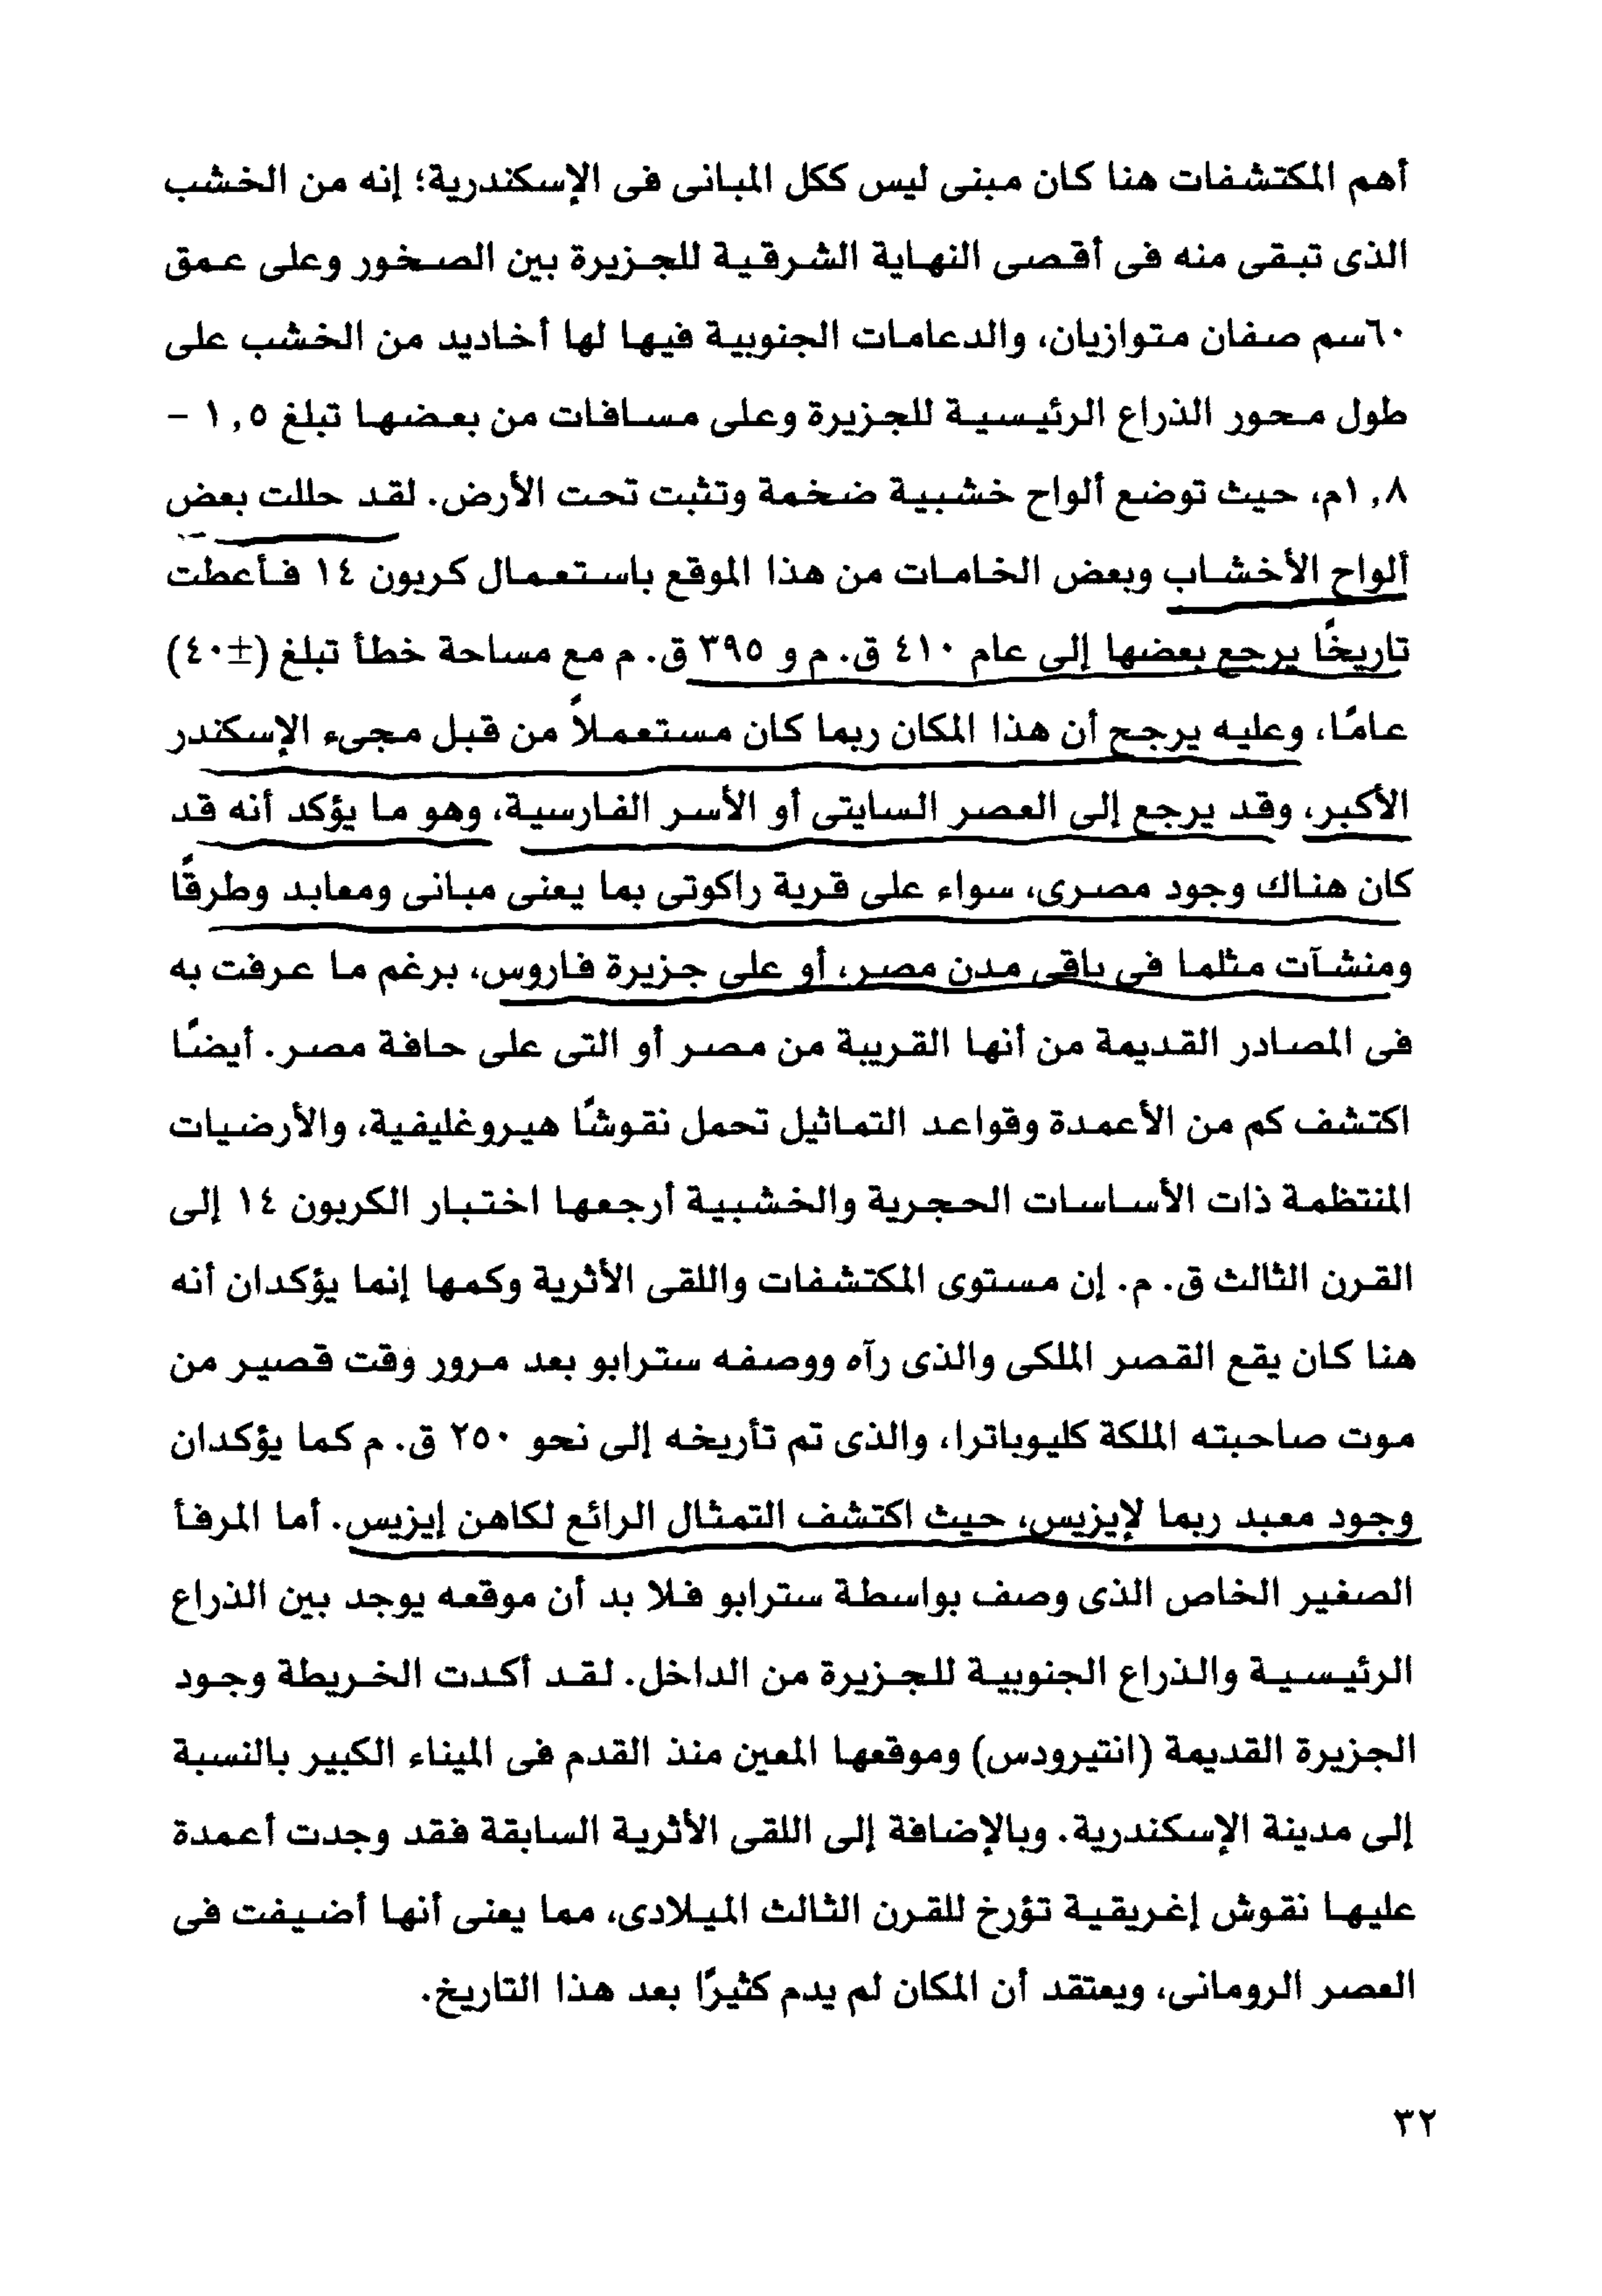 أهم المكتشفات هنا كان مبنى ليس ككل المبانى فى الإسكندرية؛ إنه من الخشب
الذى تبقى منه فى أقصى النهاية الشرقية للجزيرة بين الصخور وعلى عمق
٦٠سم صفان متوازيان، والدعامات الجنوبية فيها لها أخاديد من الخشب على
طول محور الذراع الرئيسية للجزيرة وعلى مسافات من بعضها تبلغ ١,٥ -
١,٨م، حيث توضع ألواح خشبية ضخمة وتثبت تحت الأرض. لقد حللت بعض
ألواح الأخشاب وبعض الخامات من هذا الموقع باستعمال كربون ١٤ فأعطت
تاريخًا يرجع بعضها إلى عام ٤١٠ ق. م و ٣٩٥ ق. م مع مساحة خطأ تبلغ (±٤٠)
عامًا، وعليه يرجح أن هذا المكان ربما كان مستعملاً من قبل مجىء الإسكندر
الأكبر، وقد يرجع إلى العصر السايتى أو الأسر الفارسية، وهو ما يؤكد أنه قد
كان هناك وجود مصرى، سواء على قرية راكوتى بما يعنى مبانى ومعابد وطرقًا
ومنشآت مثلما فى باقى مدن مصر، أو على جزيرة فاروس، برغم ما عرفت به
فى المصادر القديمة من أنها القريبة من مصر أو التى على حافة مصر. أيضًا
اكتشف كم من الأعمدة وقواعد التماثيل تحمل نقوشًا هيروغليفية، والأرضيات
المنتظمة ذات الأساسات الحجرية والخشبية أرجعها اختبار الكربون ١٤ إلى
القرن الثالث ق. م. إن مستوى المكتشفات واللقى الأثرية وكمها إنما يؤكدان أنه
هنا كان يقع القصر الملكى والذى رآه ووصفه سترابو بعد مرور وقت قصير من
موت صاحبته الملكة كليوباترا، والذى تم تأريخه إلى نحو ٢٥٠ ق. م كما يؤكدان
وجود معبد ربما لإيزيس، حيث اكتشف التمثال الرائع لكاهن إيزيس. أما المرفأ
الصغير الخاص الذى وصف بواسطة سترابو فلا بد أن موقعه يوجد بين الذراع
الرئيسية والذراع الجنوبية للجزيرة من الداخل. لقد أكدت الخريطة وجود
الجزيرة القديمة (انتيرودس) وموقعها المعين منذ القدم فى الميناء الكبير بالنسبة
إلى مدينة الإسكندرية. وبالإضافة إلى اللقى الأثرية السابقة فقد وجدت أعمدة
عليها نقوش إغريقية تؤرخ للقرن الثالث الميلادى، مما يعنى أنها أضيفت فى
العصر الرومانى، ويعتقد أن المكان لم يدم كثيرًا بعد هذا التاريخ.
٣٢